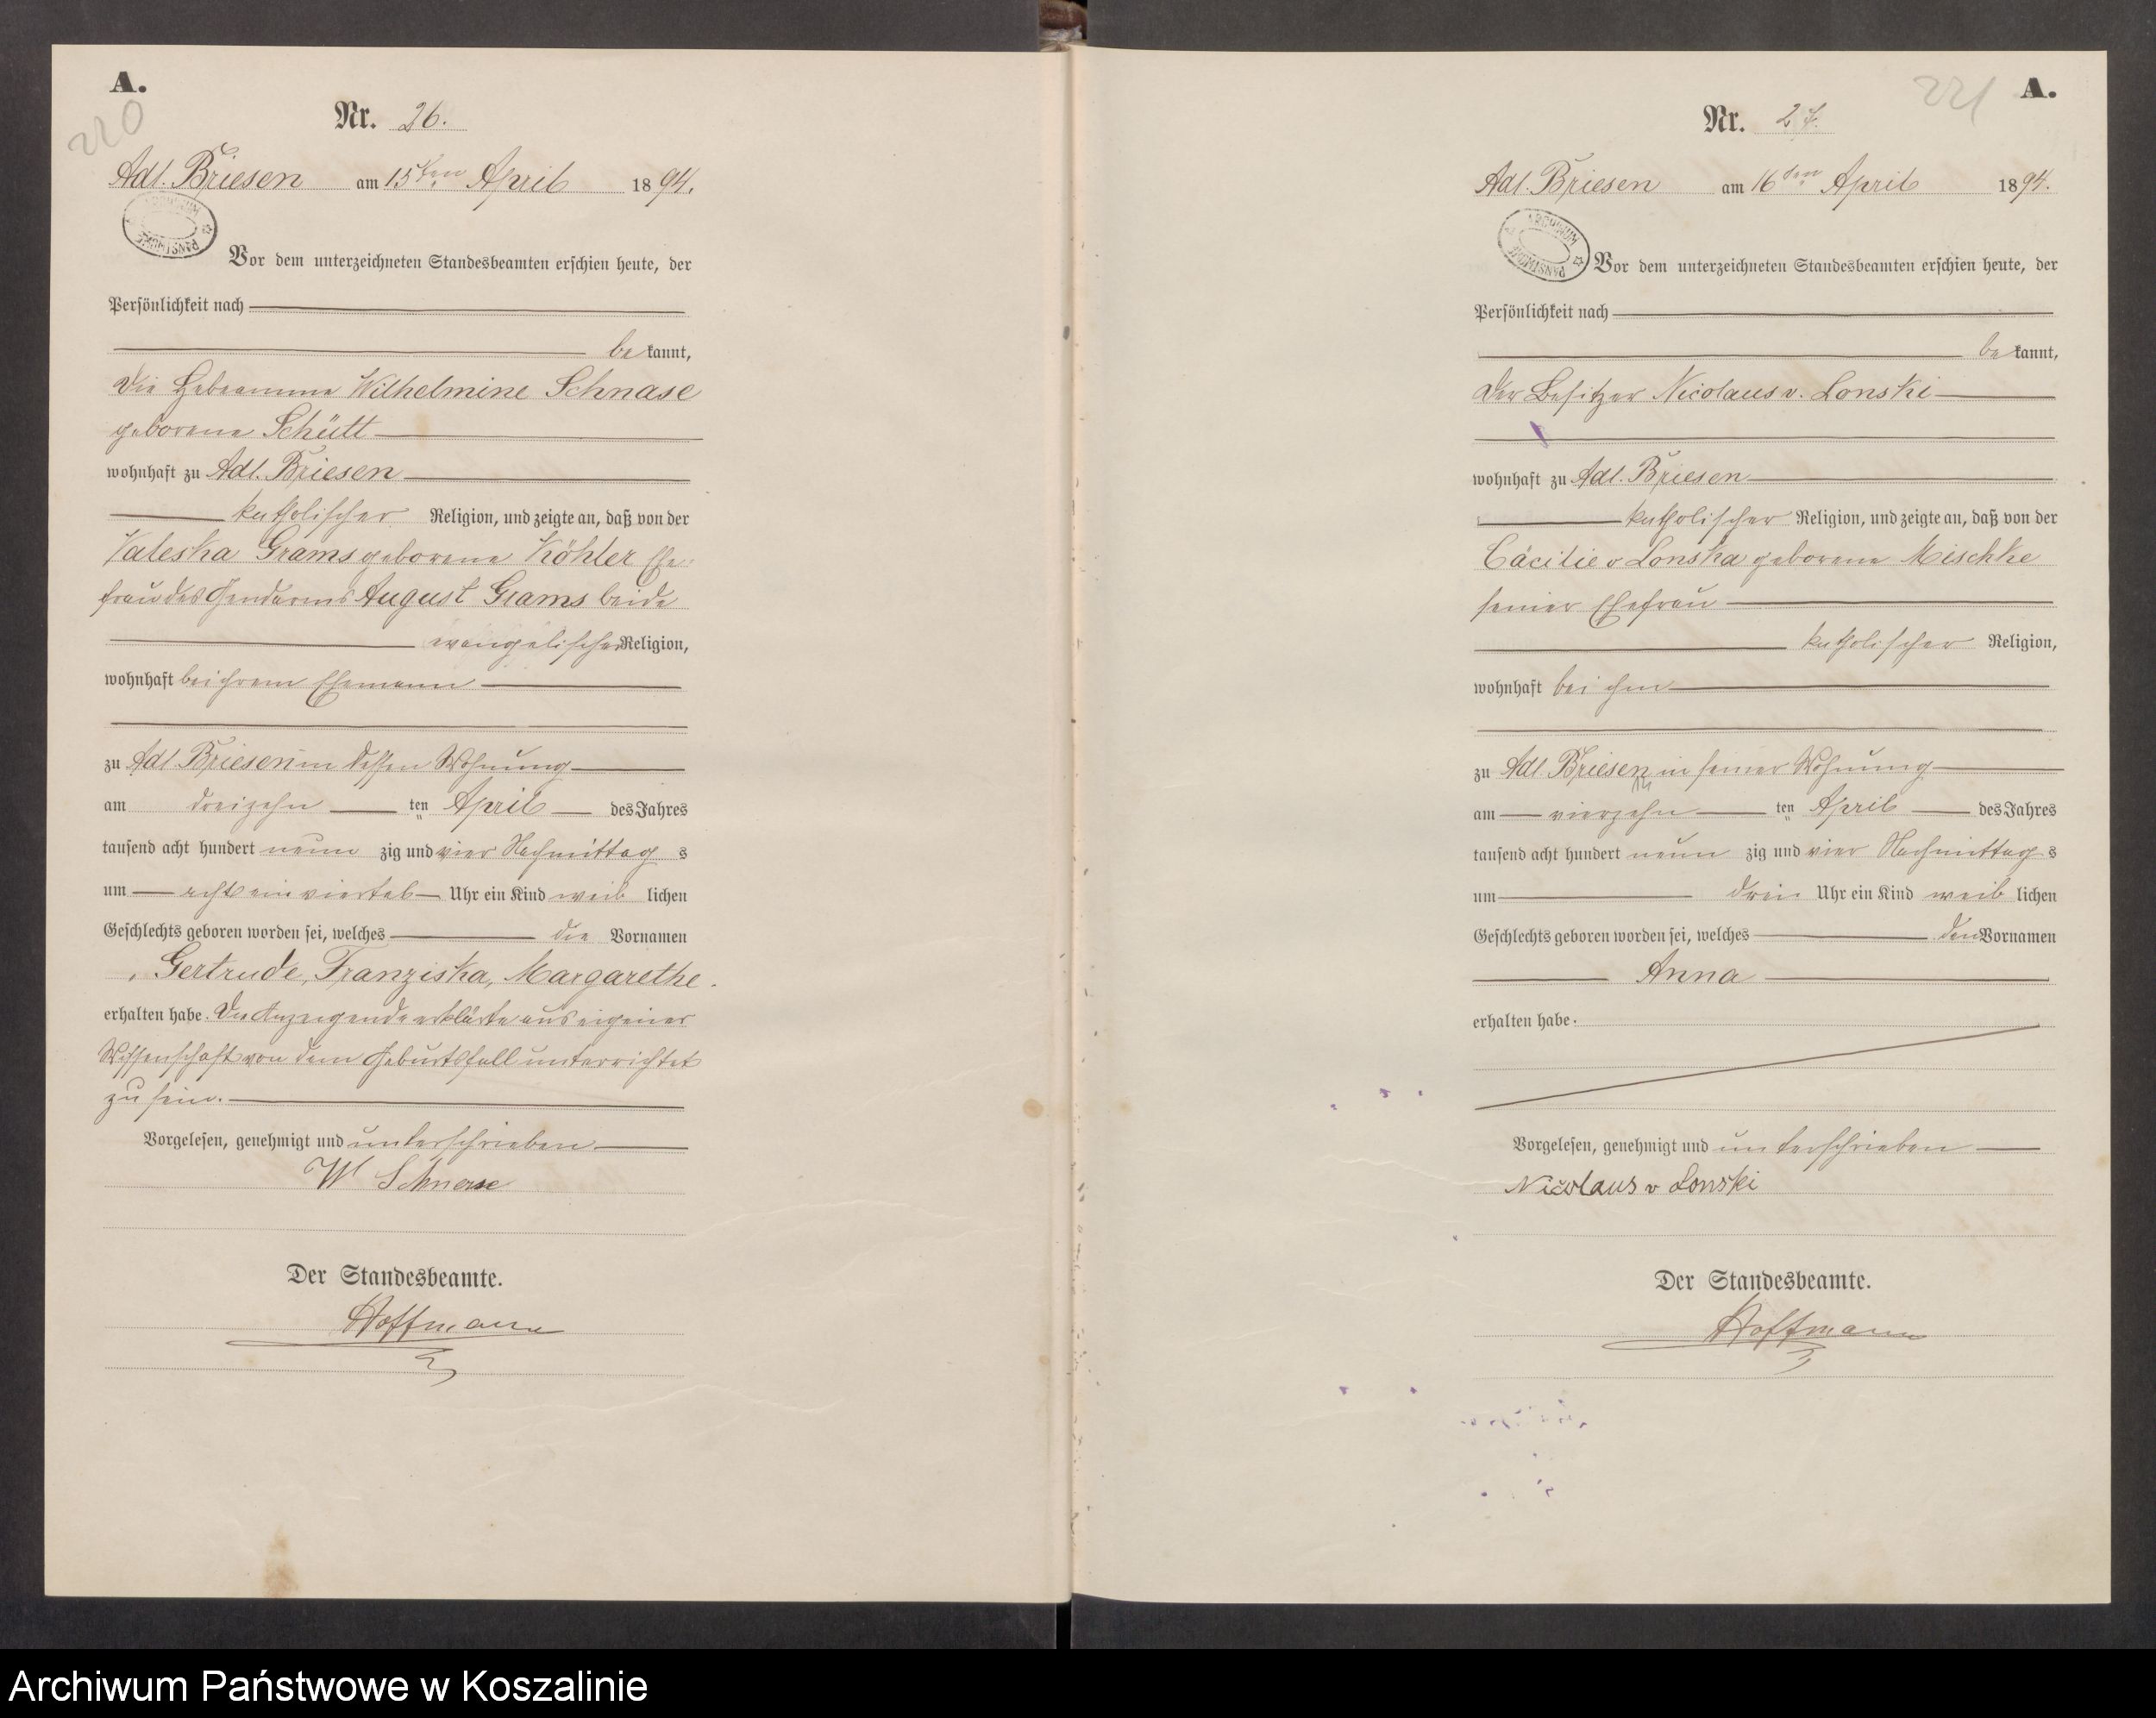 A.
220
Nr. 26.
Adl. Briesen am 15ten April 1894.
ARCHIWUM PAŃSTWOWE
Vor dem unterzeichneten Standesbeamten erschien heute, der
Persönlichkeit nach
bekannt,
die Hebeamme Wilhelmine Schnase
geborene Schütt
wohnhaft zu Adl. Briesen
katholischer Religion, und zeigte an, daß von der
Valeska Grams geborene Köhler Ehe-
frau des Gendarms August Grams beide
evangelischer Religion,
wohnhaft bei ihrem Ehemann
zu Adl. Briesen in dessen Wohnung
am dreizehn ten April des Jahres
tausend acht hundert neun zig und vier Nachmittag s
um acht ein viertel Uhr ein Kind weib lichen
Geschlechts geboren worden sei, welches die Vornamen
Gertrude, Franziska, Margarethe.
erhalten habe. Die Anzeigende erklärte aus eigener
Wissenschaft von dem Geburtsfall unterrichtet
zu sein.
Vorgelesen, genehmigt und unterschrieben
W Schnase
Der Standesbeamte.
Hoffmann
221
A.
Nr. 27.
Adl. Briesen am 16ten April 1894.
ARCHIWUM PAŃSTWOWE
Vor dem unterzeichneten Standesbeamten erschien heute, der
Persönlichkeit nach
bekannt,
der Besitzer Nicolaus v. Lonski
wohnhaft zu Adl. Briesen
katholischer Religion, und zeigte an, daß von der
Cäcilie v Lonska geborene Mischke
seiner Ehefrau
katholischer Religion,
wohnhaft bei ihm
zu Adl. Briesen in seiner Wohnung
14
am vierzehn ten April des Jahres
tausend acht hundert neun zig und vier Nachmittag s
um drei Uhr ein Kind weib lichen
Geschlechts geboren worden sei, welches den Vornamen
Anna
erhalten habe.
Vorgelesen, genehmigt und unterschrieben
Nicolaus v Lonski
Der Standesbeamte.
Hoffmann
Archiwum Państwowe w Koszalinie